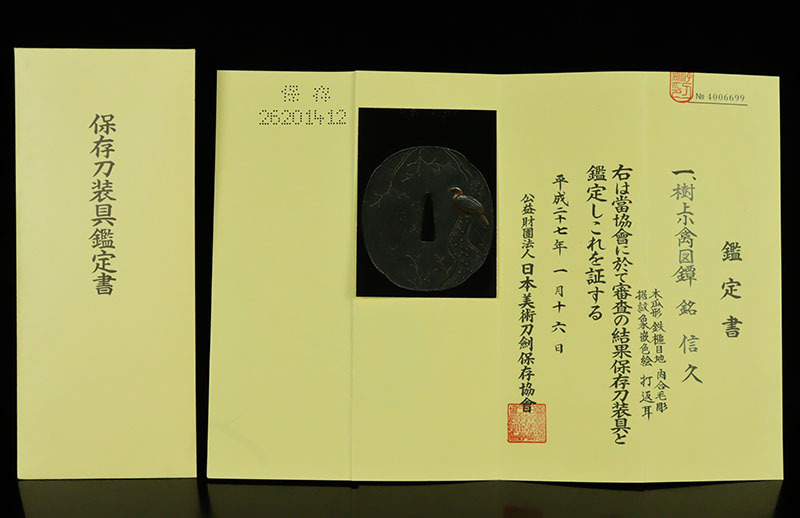 保存刀装具鑑定書
保存
26201412
№ 4006699
鑑定書
一、樹上小禽図鐔 銘 信久
木瓜形 鉄槌目地 肉合毛彫
据紋象嵌色絵 打返耳
右は當協會に於て審査の結果保存刀装具と
鑑定しこれを証する
平成二十七年 一月十六日
公益財團法人 日本美術刀剣保存協會